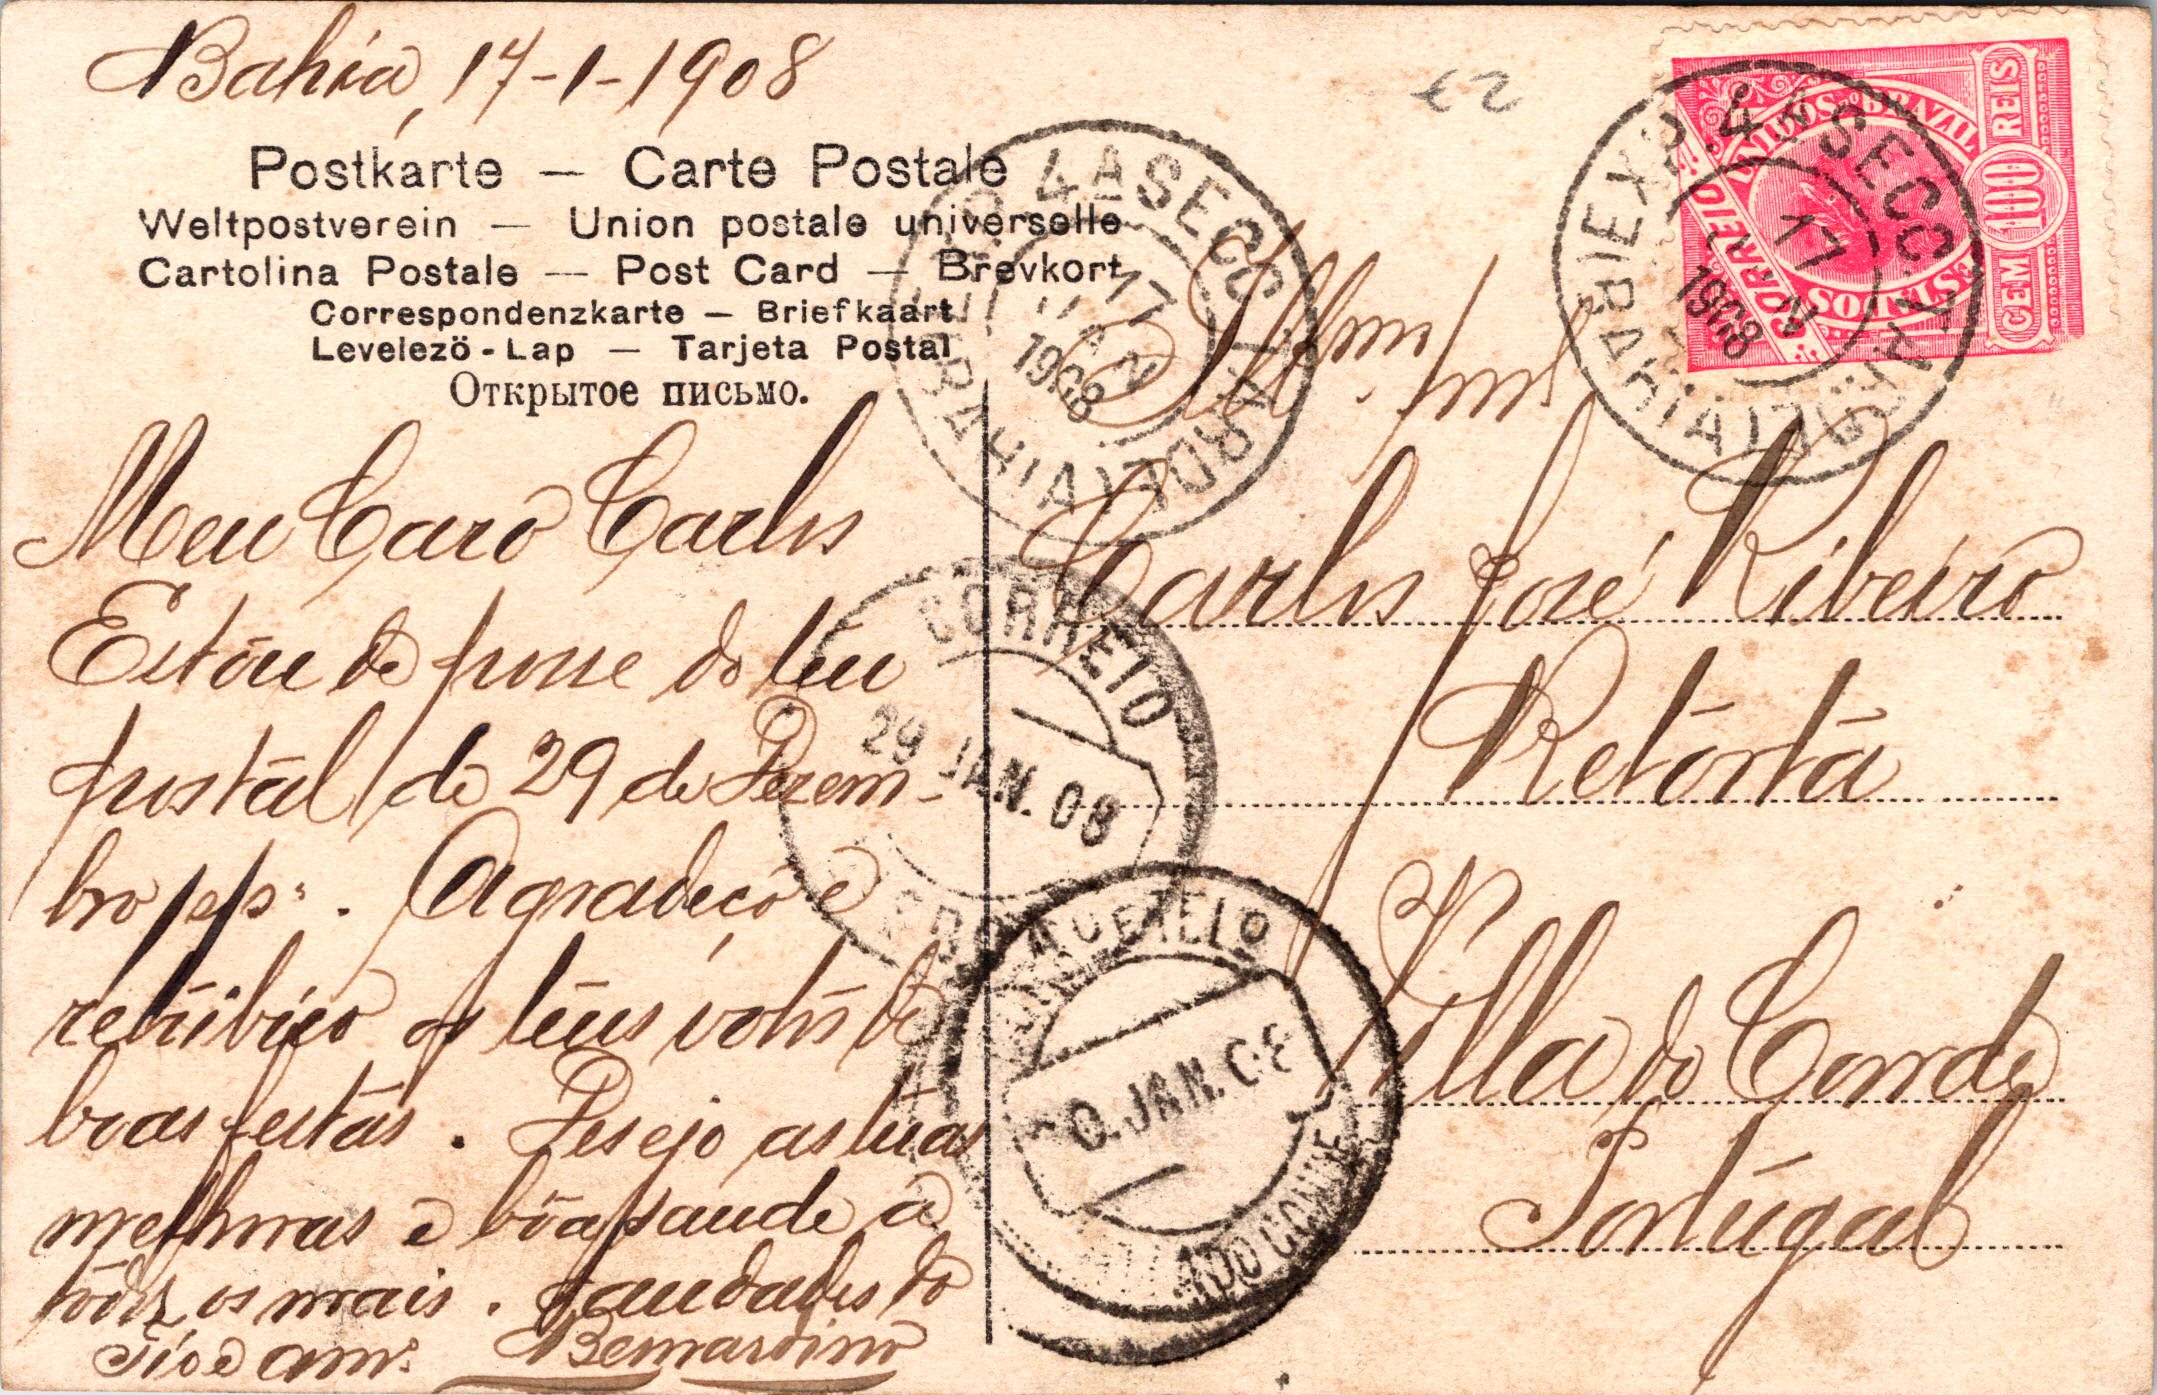 Bahia, 17-1-1908
Postkarte — Carte Postale
Weltpostverein — Union postale universelle
Cartolina Postale — Post Card — Brevkort
Correspondenzkarte — Briefkaart
Levelezö-Lap — Tarjeta Postal
Открытое письмо.
Meu Caro Carlos
Estou de posse do teu
postal de 29 de Dezem-
bro p/p. Agradeço e
retribuo os teus votos de
boas festas. Desejo as tuas
melhoras e bôa saude a
todos os mais. Saudades do
Tio e amº. Bernardino
Illmo Snr
Carlos José Ribeiro
Retorta
Villa do Conde
Portugal
CORREIO
ESTADOS UNIDOS DO BRAZIL
CEM 100 REIS
4ª SECC
TARDE
BAHIA
17 JAN
1908
4ª SECC TARDE
17 JAN
1908
BAHIA
CORREIO
29 JAN. 08
CORREIO E TELEG
0. JAN. 08
VILLA DO CONDE